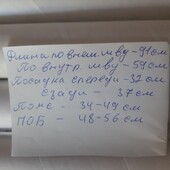 Длина по внеш шву - 91 см
По внутр. шву - 59 см
Посадка спереди - 32 см
Сзади - 37 см
Пояс - 34-44 см
ПОБ - 48-56 см